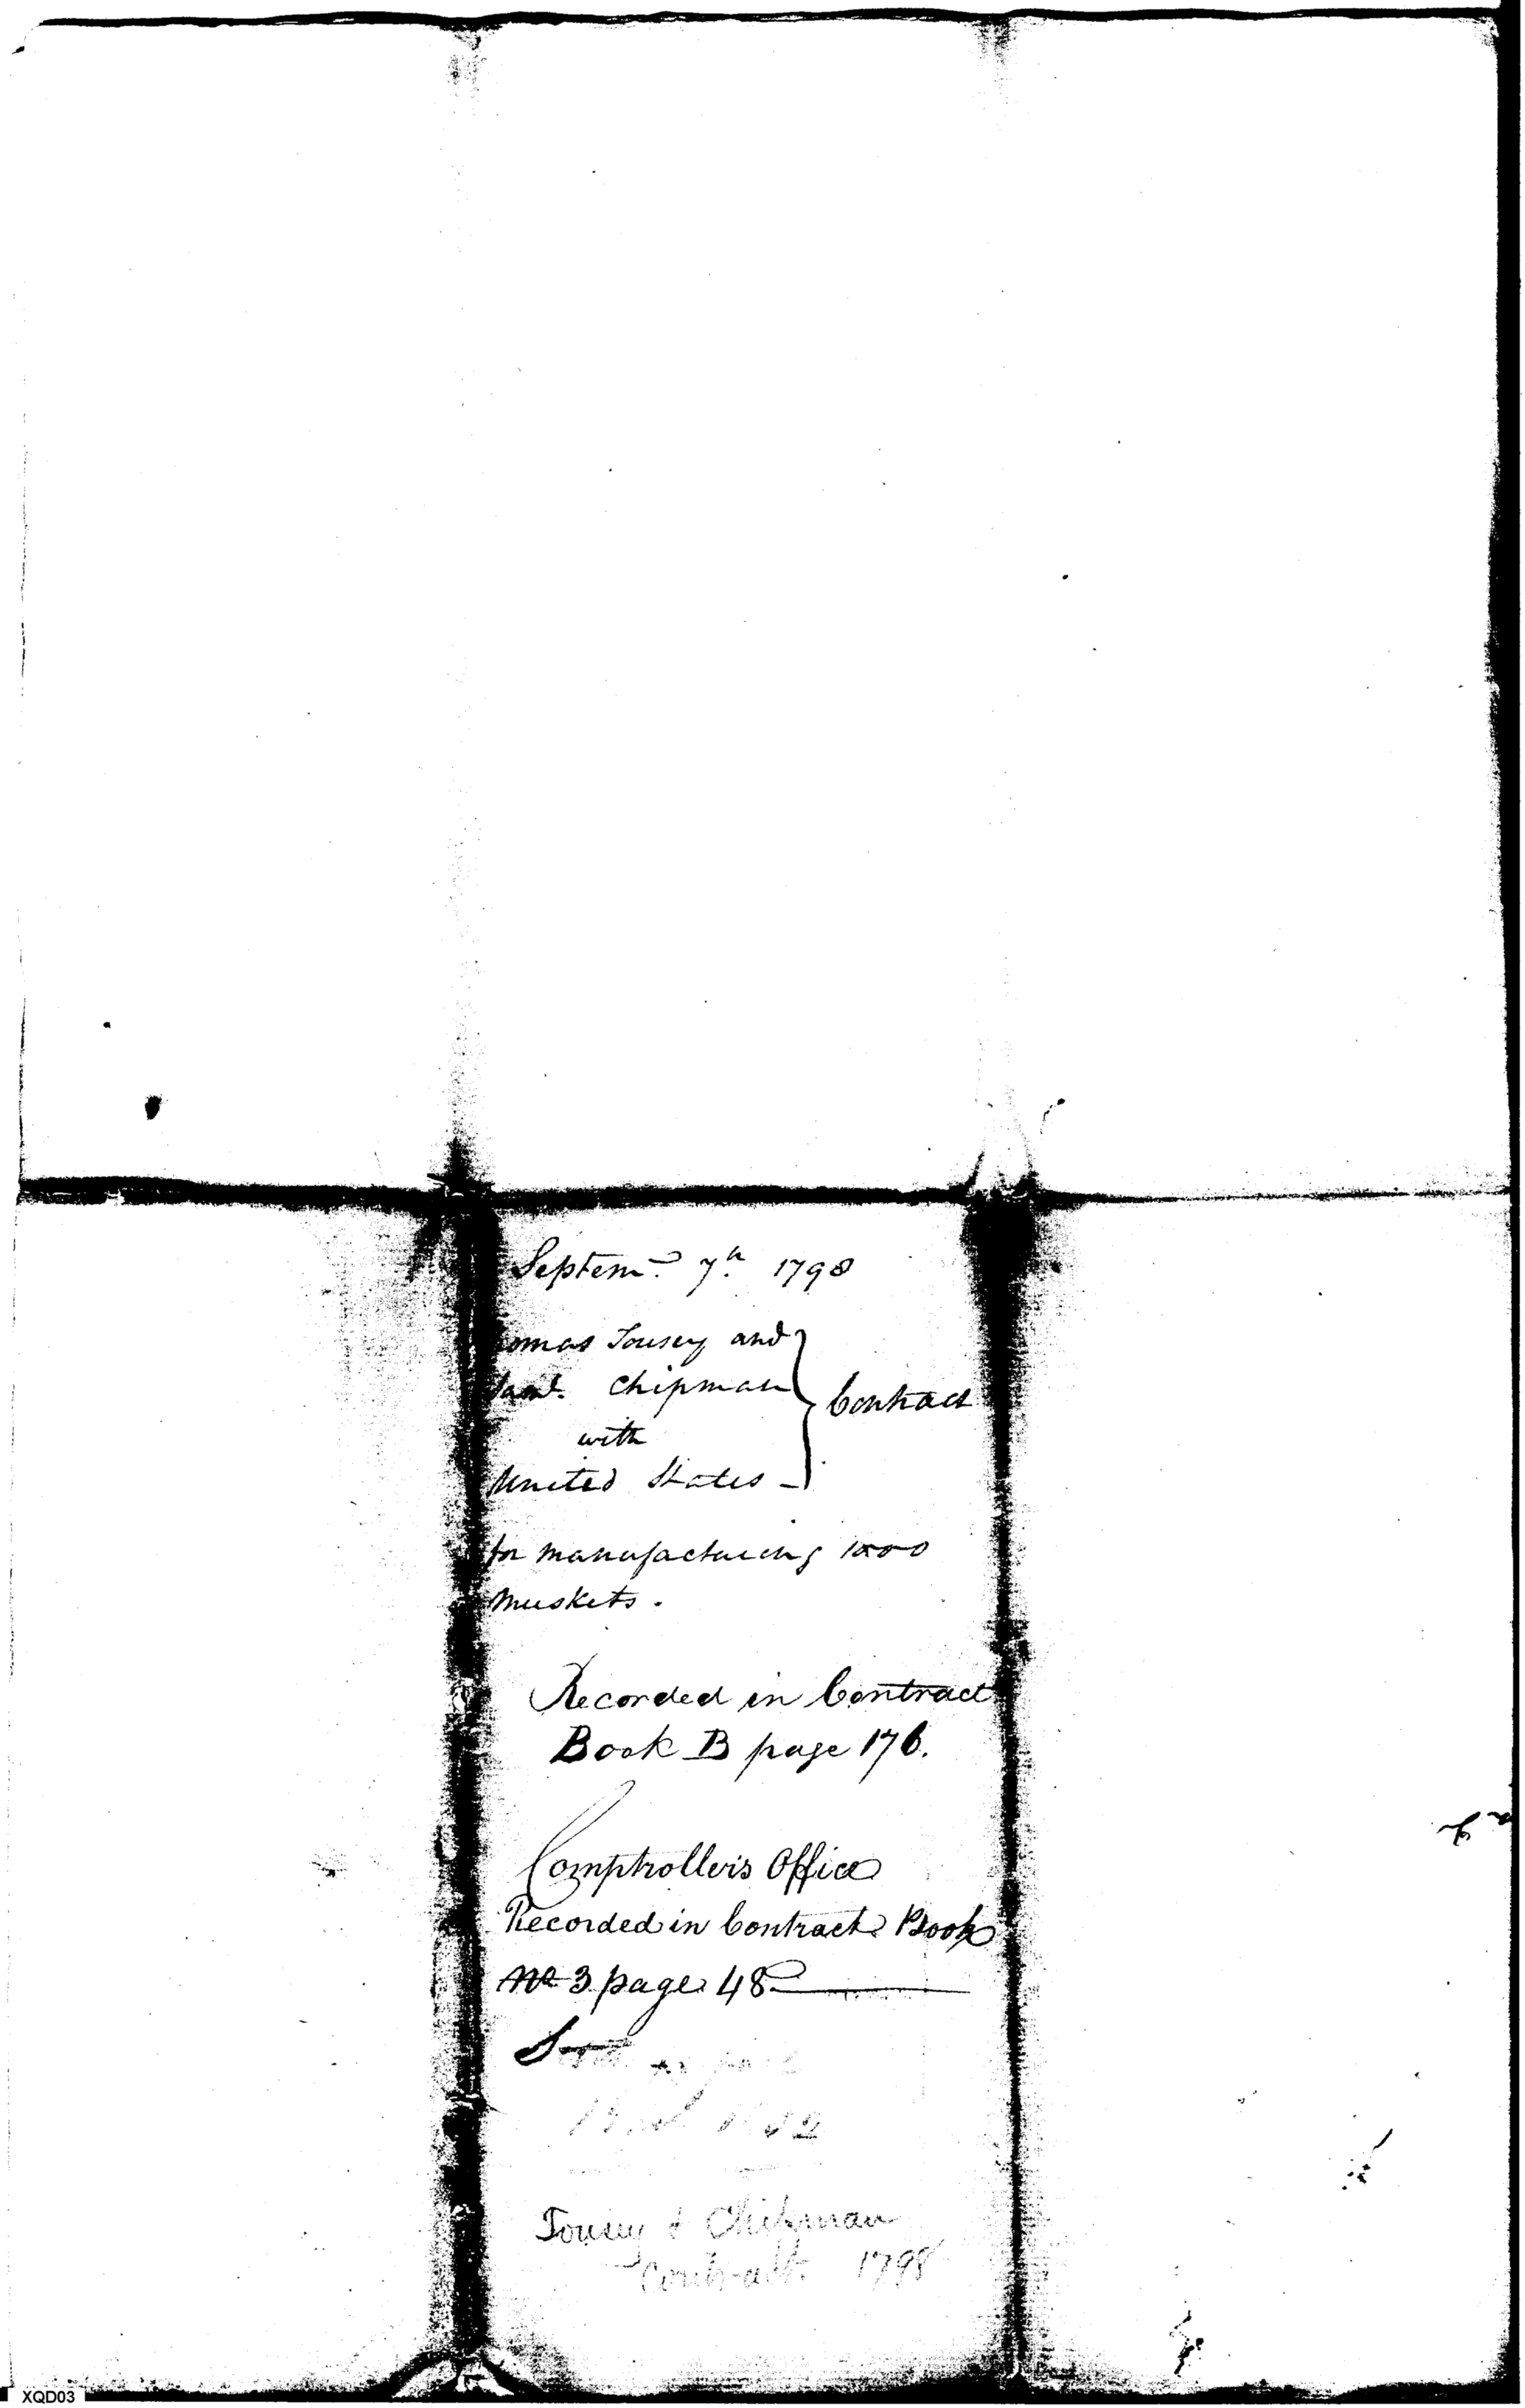 Septemr. 7th 1798
omas Tousey and
Saml. Chipman
with
United States
Contract
for manufacturing 1000
Muskets.
Recorded in Contract
Book B page 176.
Comptroller's Office
Recorded in Contract Book
No 3 page 48
Tousey & Chipman
Contract 1798
XQD03